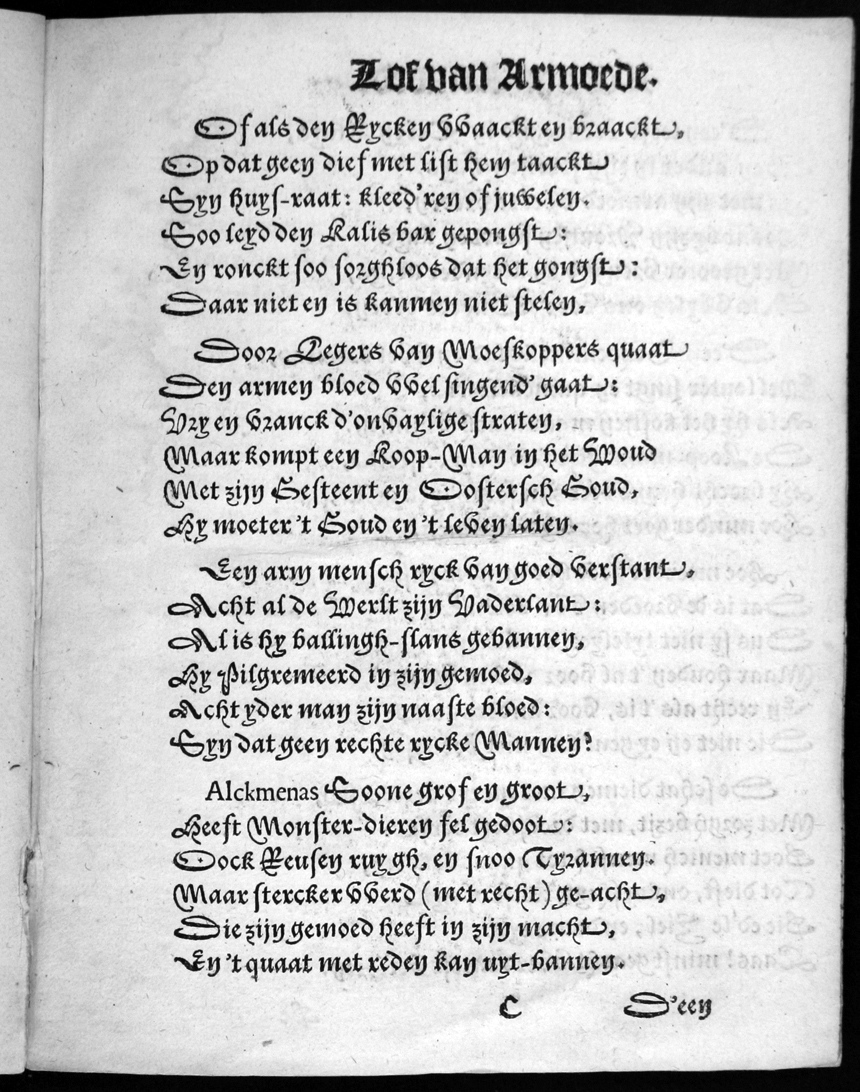 Lof van Armoede.
Of als den Rycken VVaackt en braackt,
Op dat geen dief met list hem taackt
Syn huys-raat: kleed'ren of juwelen.
Soo leyd den Kalis bar gepongst:
En ronckt soo sorghloos dat het gongst:
Daar niet en is kanmen niet stelen,
Door Legers van Moeskoppers quaat
Den armen bloed VVel singend' gaat:
Vry en vranck d'onvaylige straten,
Maar kompt een Koop-Man in het Woud
Met zijn Gesteent en Oostersch Goud,
Hy moeter 't Goud en 't leven laten.
Een arm mensch ryck van goed verstant,
Acht al de Werlt zijn Vaderlant:
Al is hy ballingh-slans gebannen,
Hy Pilgremeerd in zijn gemoed,
Acht yder man zijn naaste bloed:
Syn dat geen rechte rycke Mannen?
Alckmenas Soone grof en groot,
Heeft Monster-dieren fel gedoot:
Oock Reusen ruygh, en snoo Tyrannen.
Maar stercker VVerd (met recht) ge-acht,
Die zijn gemoed heeft in zijn macht,
En 't quaat met reden kan uyt-bannen.
C D'een